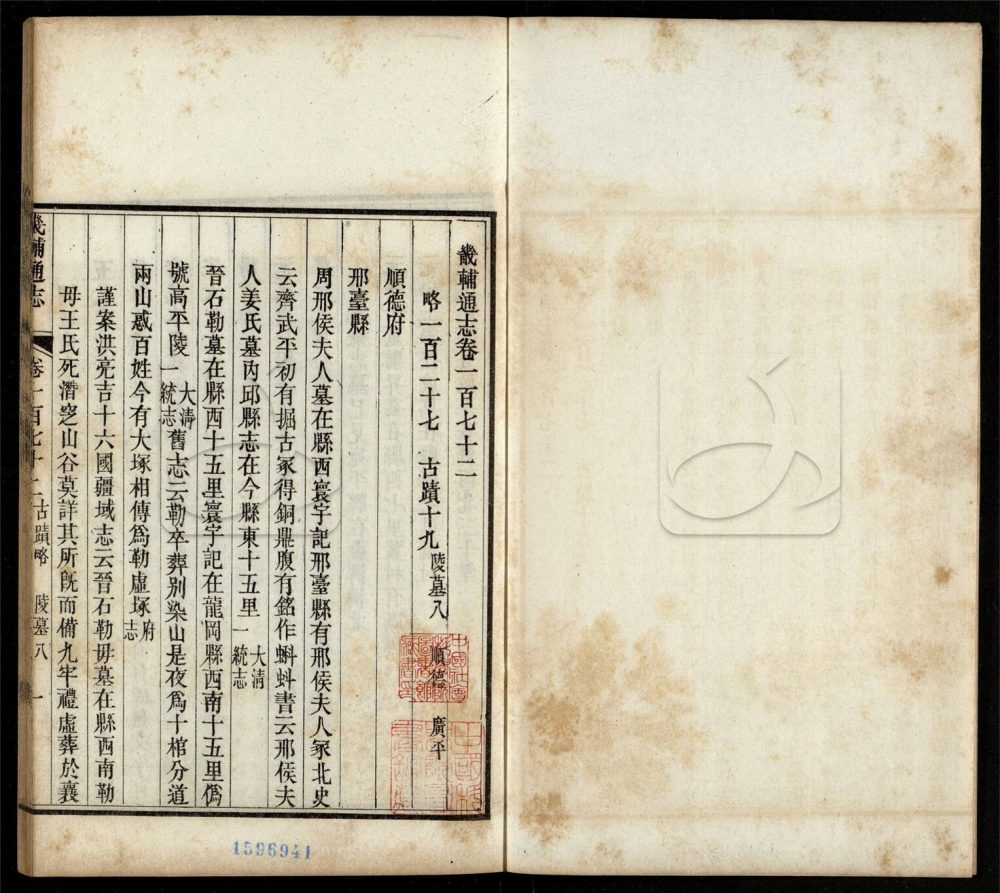 畿輔通志卷一百七十二
略一百二十七 古蹟十九 陵墓八 順德 廣平
順德府
邢臺縣
周邢侯夫人墓在縣西寰宇記邢臺縣有邢侯夫人冢北史
云齊武平初有掘古冢得銅鼎腹有銘作蝌蚪書云邢侯夫
人姜氏墓丙邱縣志在今縣東十五里 大清一統志
晉石勒墓在縣西十五里寰宇記在龍岡縣西南十五里僞
號高平陵 大清一統志 舊志云勒卒葬別㳿山是夜爲十棺分道
兩山惑百姓今有大塚相傳爲勒虛塚 府志
謹案洪亮吉十六國疆域志云晉石勒毋墓在縣西南勒
毋王氏死潛窆山谷莫詳其所旣而備九牢禮虛葬於襄
畿輔通志 卷一百七十二 古蹟略 陵墓八 一
1596941